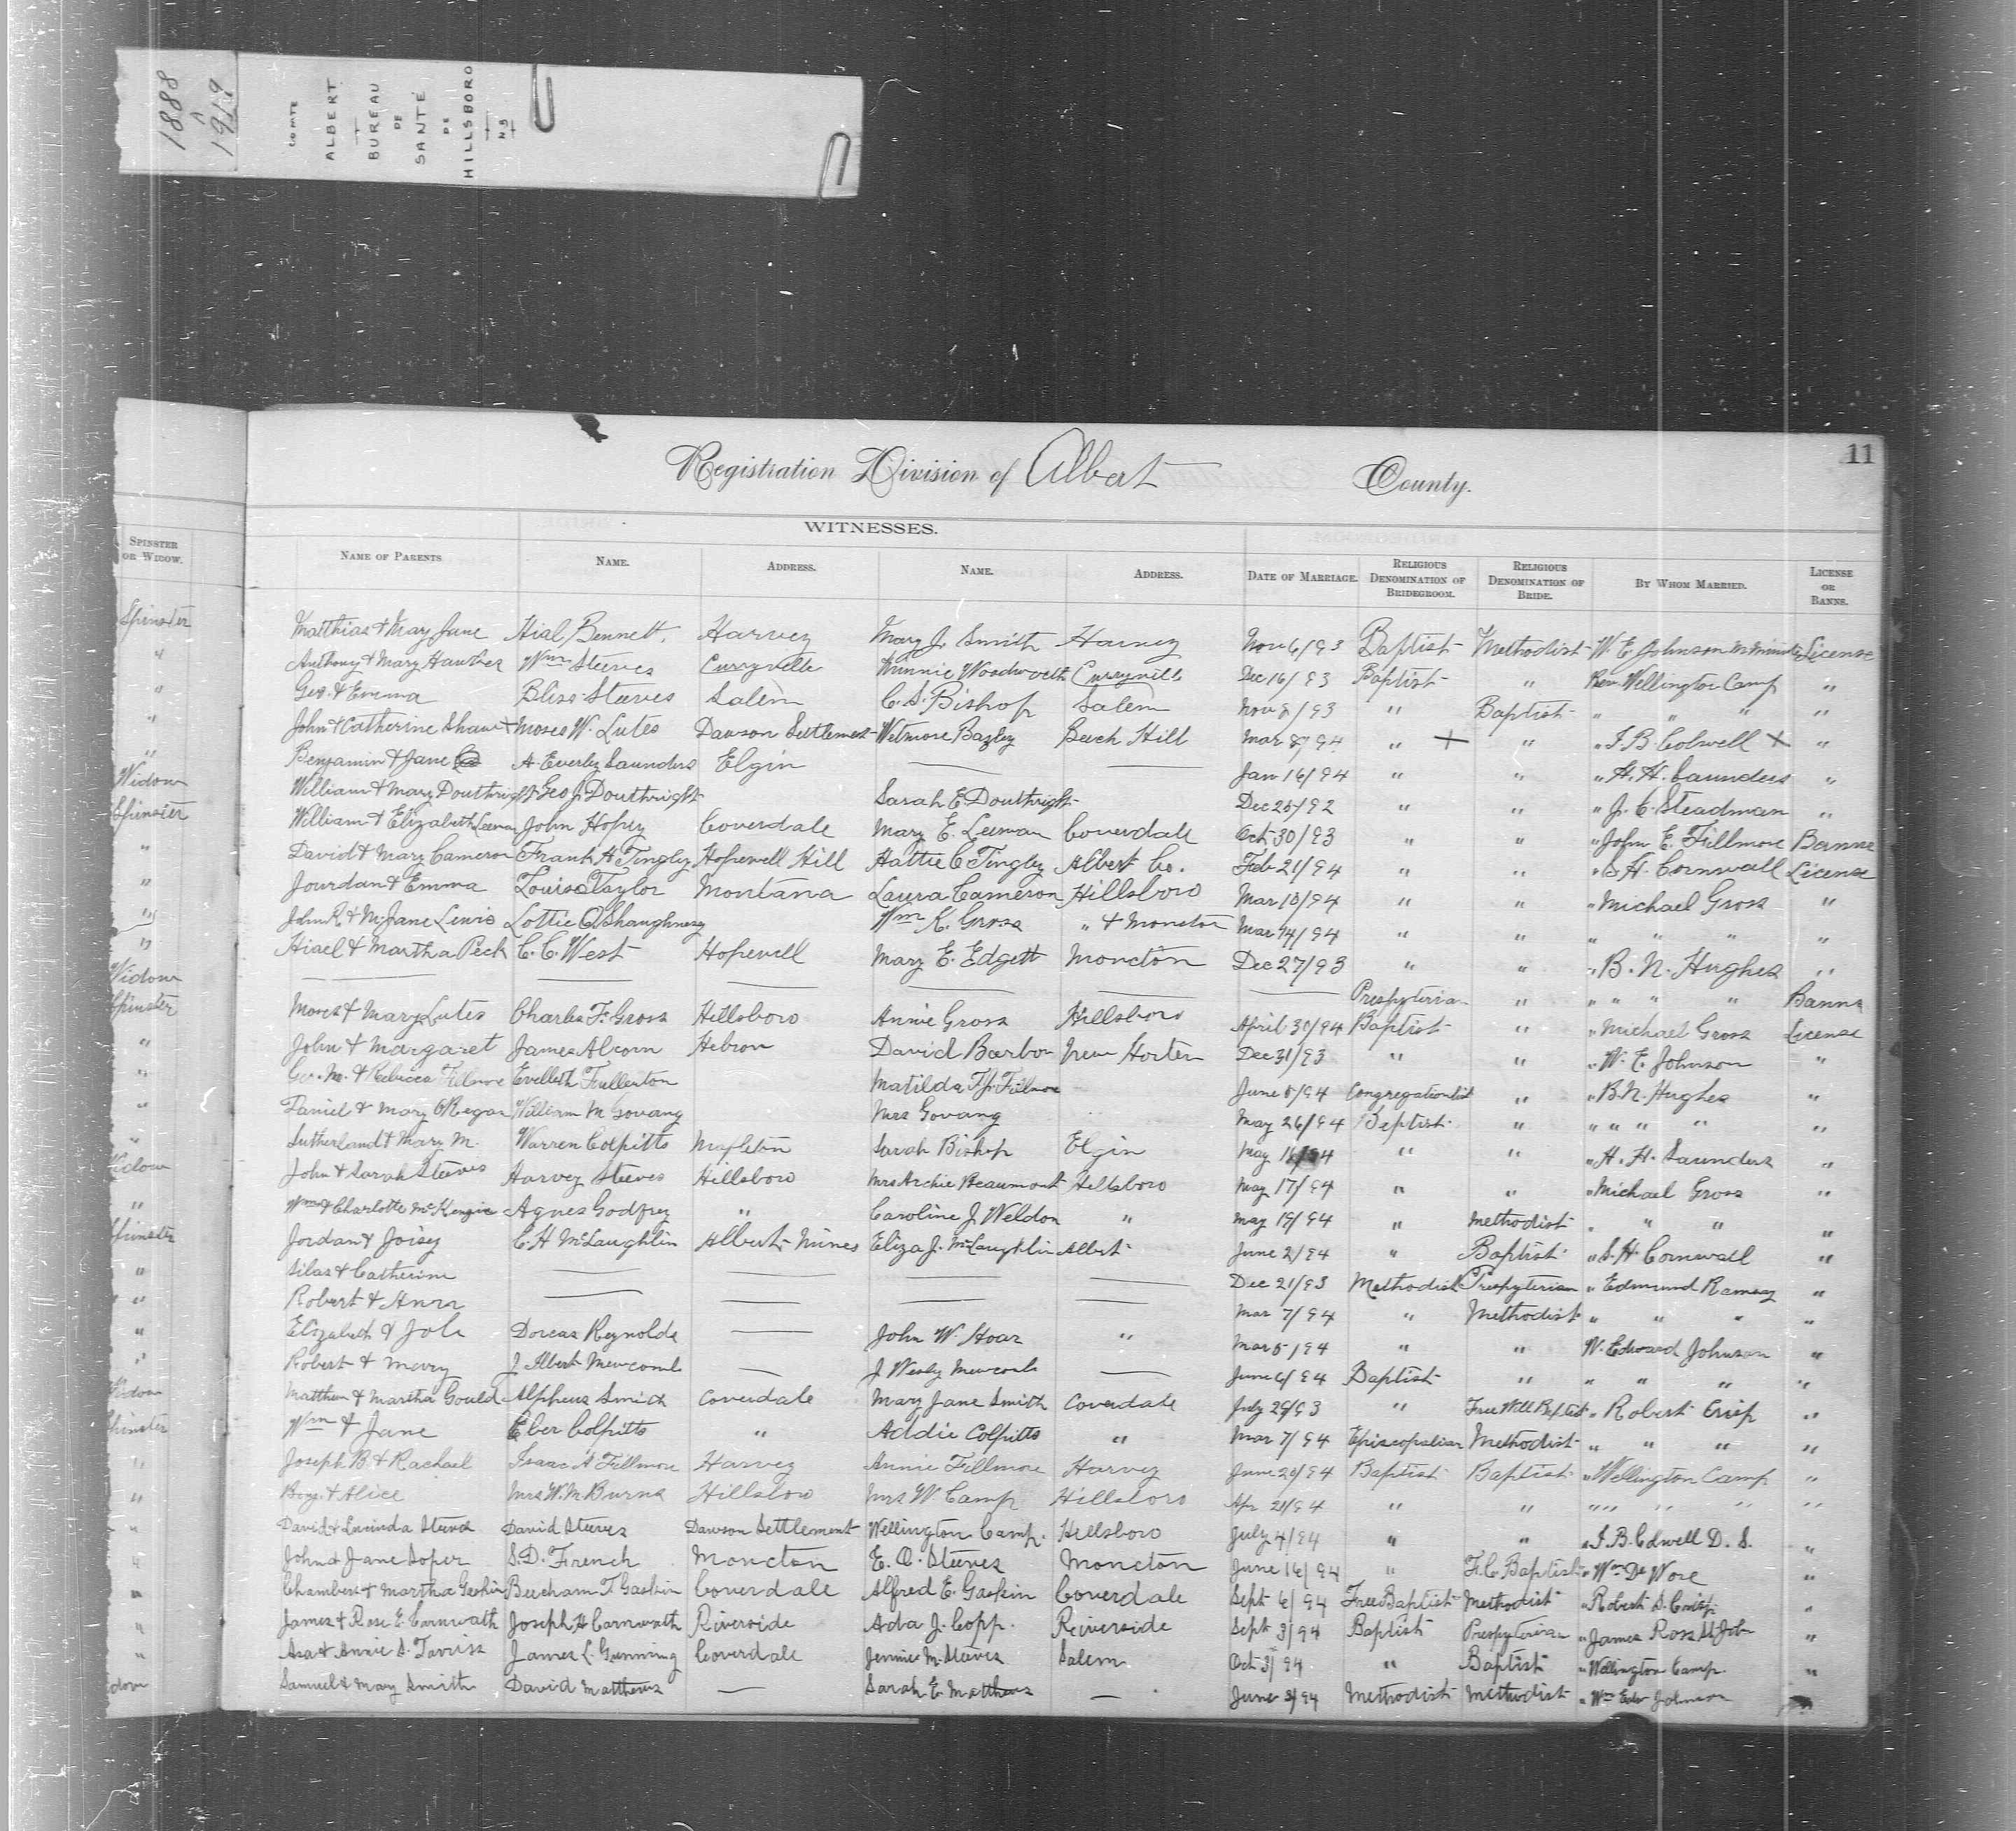 1888
À
1919
COMTE
ALBERT
BUREAU
DE
SANTÉ
DE
HILLSBORO
N B
11
Registration Division of Albert County.
WITNESSES.
SPINSTER OR WIDOW. NAME OF PARENTS NAME. ADDRESS. NAME. ADDRESS. DATE OF MARRIAGE. RELIGIOUS DENOMINATION OF BRIDEGROOM. RELIGIOUS DENOMINATION OF BRIDE. BY WHOM MARRIED. LICENSE OR BANNS.
Spinster Matthias & Mary Jane Hial Bennett. Harvey Mary J. Smith Harvey Nov 6/93 Baptist Methodist W. E. Johnson License
" Anthony & Mary Wm Steeves Curryville Minnie Woodworth Curryville Dec 16/93 Baptist " Rev. Wellington Camp "
" Geo. & Emma Bliss Steeves Salem C. S. Bishop Salem Nov /93 " Baptist " " " "
" John & Catherine Shaw + Moses W. Lutes Dawson Settlement Wetmore Bazley Beech Hill Mar /94 " + " " I. B. Colwell + "
" Benjamin & Jane A. Everley Saunders Elgin — — Jan 16/94 " " " H. H. Saunders "
Widow William & Mary Douthright Geo J. Douthright Sarah E Douthright Dec 25/92 " " " J. C. Steadman "
Spinster William & Elizabeth Leeman John Hopey Coverdale Mary E. Leeman Coverdale Oct 30/93 " " " John E. Fillmore Banns
" David & Mary Cameron Frank H Tingley Hopewell Hill Hattie C Tingley Albert Co. Feb 21/94 " " " S. H. Cornwall License
" Jourdan & Emma Louisa Taylor Montana Laura Cameron Hillsboro Mar 10/94 " " " Michael Gross "
" John R. & M. Jane Lewis Lottie O'Shaughnesy Wm K. Gross " & Moncton Mar 14/94 " " " " " "
" Hiael & Martha Peck C. C. West Hopewell Mary E. Edgett Moncton Dec 27/93 " " " B. N. Hughes "
Widow — — — — — — Presbyterian " " " " " Banns
Spinster Moses & Mary Lutes Charles F. Gross Hillsboro Annie Gross Hillsboro April 30/94 Baptist " " Michael Gross License
" John & Margaret James Alcorn Hebron David Barbor New Horton Dec 31/93 " " " W. E. Johnson "
" Geo. M. & Rebecca Fillmore Evelleth Fullerton Matilda Fillmore June /94 Congregationalist " " B. N. Hughes "
" Daniel & Mary O'Regan William M Govang Mrs Govang May 26/94 Baptist " " " " " "
" Sutherland & Mary M. Warren Colpitts Mapleton Sarah Bishop Elgin May /94 " " " H. H. Saunders "
Widow John & Sarah Steeves Harvey Steeves Hillsboro Mrs Archie Beaumont Hillsboro May 17/94 " " " Michael Gross "
" Wm & Charlotte McKenzie Agnes Godfrey " Caroline J. Weldon " May 19/94 " Methodist " " " "
Spinster Jordan & Joisy C. H McLaughlin Albert Mines Eliza J. McLaughlin Albert June 2/94 " Baptist " S. H. Cornwall "
" Silas & Catherine — — — — Dec 21/93 Methodist Presbyterian " Edmund Ramsay "
" Robert & Anna — — — — Mar 7/94 " Methodist " " " "
" Elizabeth & Job Dorcas Reynolds — John W. Hoar " Mar 5/94 " " W. Edward Johnson "
" Robert & Mary J. Albert Newcomb — J. Wesley Newcomb — June 6/94 Baptist " " " " "
Widow Matthew & Martha Gould Alpheus Smith Coverdale Mary Jane Smith Coverdale July 29/93 " Free Will Baptist " Robert Crisp "
Spinster Wm & Jane Eber Colpitts " Addie Colpitts " Mar 7/94 Episcopalian Methodist " " " "
" Joseph B. & Rachael Isaac A Fillmore Harvey Annie Fillmore Harvey June 20/94 Baptist Baptist " Wellington Camp "
" Benj. & Alice Mrs W. M Burns Hillsboro Mrs W Camp Hillsboro Apr 21/94 " " " " " " "
" David & Lucinda Steeves David Steeves Dawson Settlement Wellington Camp. Hillsboro July 4/94 " " " I. B. Colwell D. S. "
" John & Jane Soper S. D. French Moncton E. O. Steeves Moncton June 16/94 " F. C. Baptist " Wm De Wore "
" Chambers & Martha Gaskin Beecham T. Gaskin Coverdale Alfred E. Gaskin Coverdale Sept 6/94 Free Baptist Methodist " Robert S. Crisp "
" James & Rose E. Carnwath Joseph H Carnwath Riverside Ada J. Copp. Riverside Sept 3/94 Baptist Presbyterian " James Ross St John "
" Asa & Annie S. James C. Gunning Coverdale Jennie M. Steeves Salem Oct 3/94 " Baptist " Wellington Camp. "
Widow Samuel & Mary Smith David Matthews — Sarah E. Matthews — June 3/94 Methodist Methodist " Wm Edw Johnson "